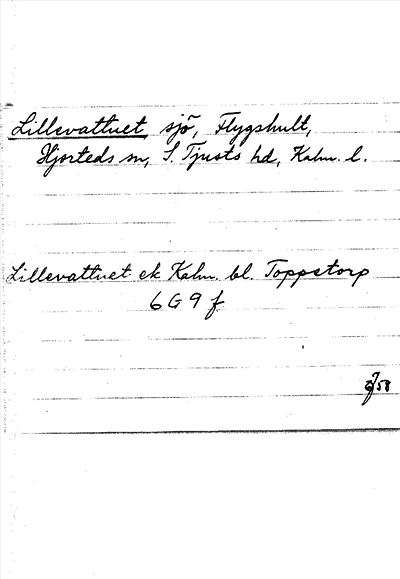 Lillevattnet, sjö, Flygshult,
Hjorteds sn, S. Tjusts hd, Kalm. l.
Lillevattnet ek Kalm. bl. Toppetorp
6 G 9 f